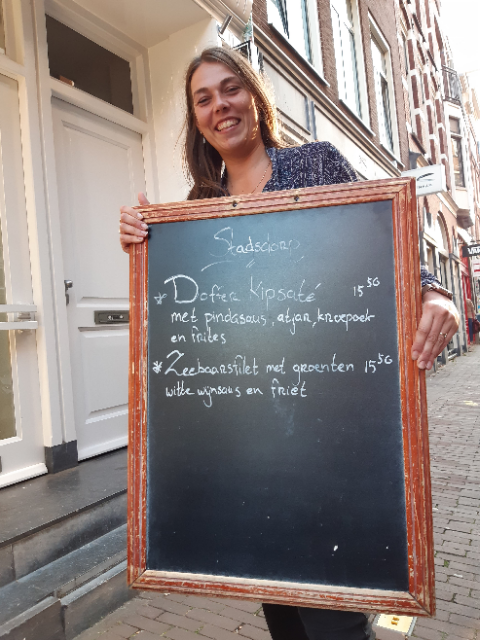 Stadsdorp
* Doffer Kipsaté 15 50
met pindasaus, atjar, kroepoek
en frites
* Zeebaarsfilet met groenten 15 50
witte wijnsaus en friet